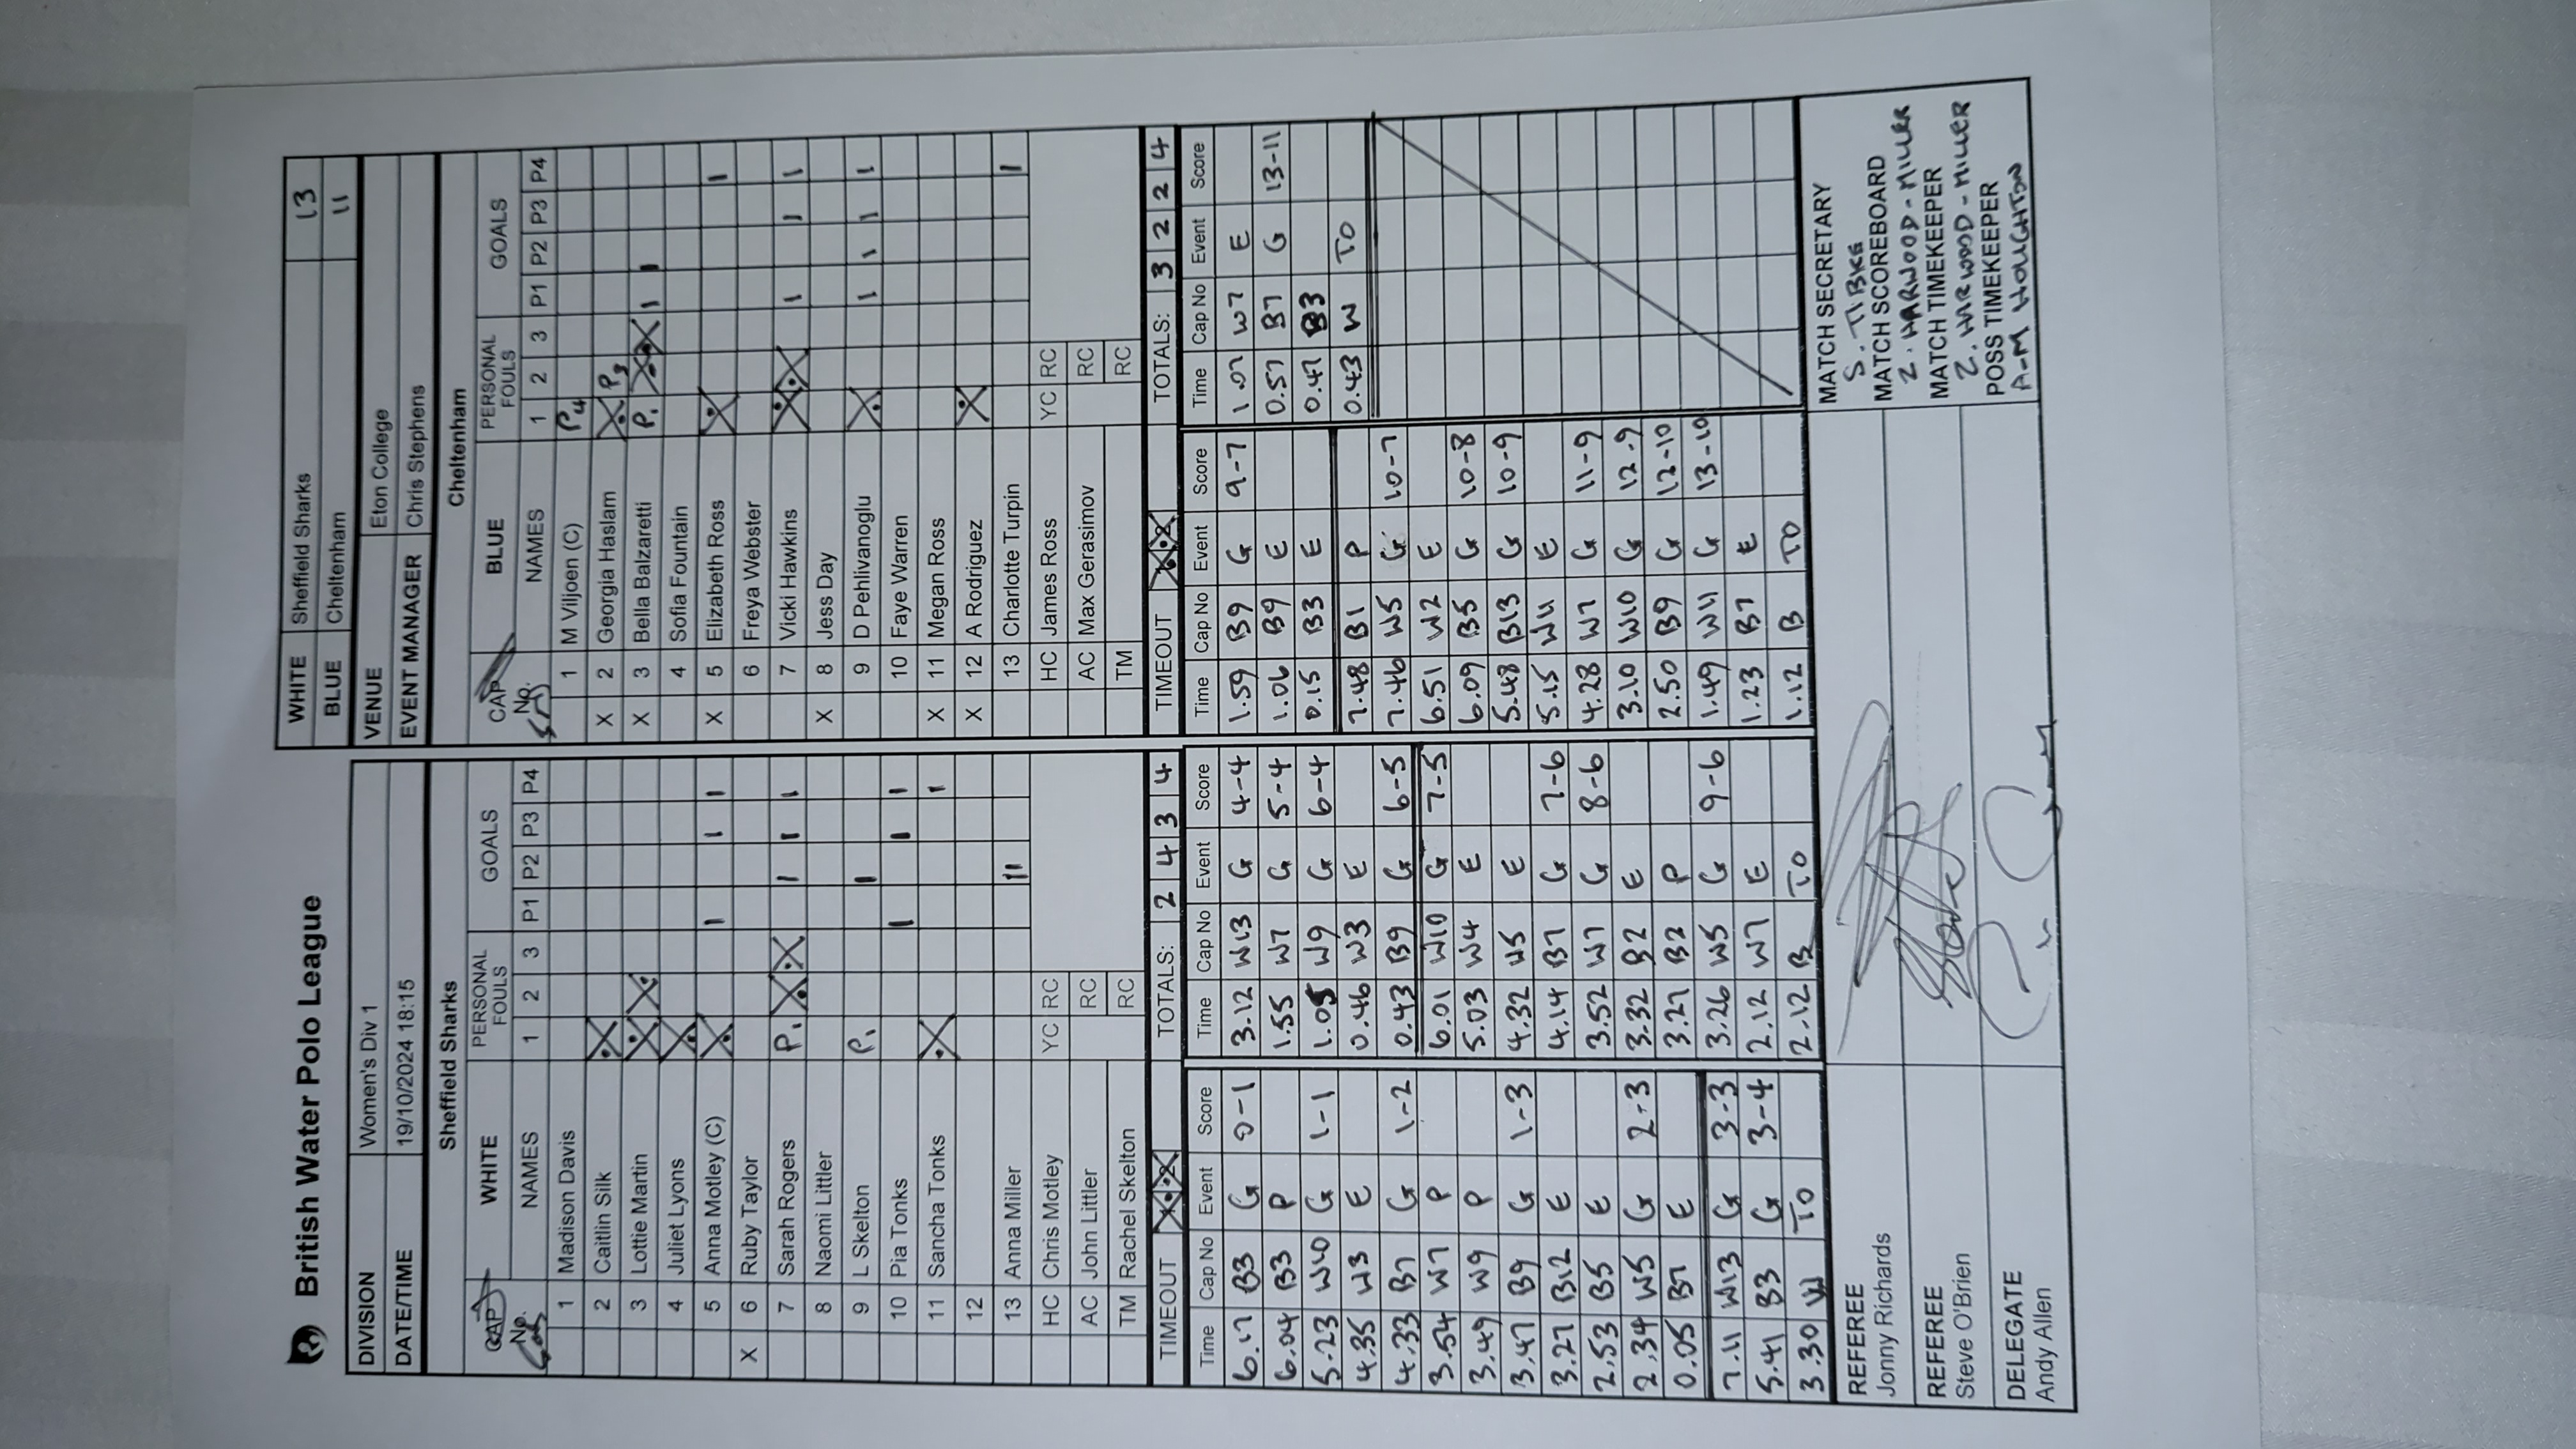 British Water Polo League
DIVISION Women's Div 1
DATE/TIME 19/10/2024 18:15
WHITE Sheffield Sharks 13
BLUE Cheltenham 11
VENUE Eton College
EVENT MANAGER Chris Stephens
Sheffield Sharks
CAP No. WHITE NAMES PERSONAL FOULS 1 2 3 GOALS P1 P2 P3 P4
1 Madison Davis
2 Caitlin Silk
3 Lottie Martin
4 Juliet Lyons
5 Anna Motley (C) I I I
X 6 Ruby Taylor
7 Sarah Rogers P1 I I I
8 Naomi Littler
9 L Skelton P1 I
10 Pia Tonks I I I
11 Sancha Tonks I
12
13 Anna Miller II
HC Chris Motley YC RC
AC John Littler RC
TM Rachel Skelton RC
TIMEOUT TOTALS: 2 4 3 4
Cheltenham
CAP No. BLUE NAMES PERSONAL FOULS 1 2 3 GOALS P1 P2 P3 P4
1 M Viljoen (C) P4
X 2 Georgia Haslam P3
X 3 Bella Balzaretti P1 I I
4 Sofia Fountain
X 5 Elizabeth Ross I
6 Freya Webster
7 Vicki Hawkins I I I
X 8 Jess Day
9 D Pehlivanoglu I I I I
10 Faye Warren
X 11 Megan Ross
X 12 A Rodriguez
13 Charlotte Turpin I
HC James Ross YC RC
AC Max Gerasimov RC
TM RC
TIMEOUT TOTALS: 3 2 2 4
Time Cap No Event Score
6.17 B3 G 0-1
6.04 B3 P
5.23 W10 G 1-1
4.35 W3 E
4.33 B7 G 1-2
3.54 W7 P
3.49 W9 P
3.47 B9 G 1-3
3.27 B12 E
2.53 B5 E
2.34 W5 G 2-3
0.05 B7 E
7.11 W13 G 3-3
5.41 B3 G 3-4
3.30 W TO
Time Cap No Event Score
3.12 W13 G 4-4
1.55 W7 G 5-4
1.05 W9 G 6-4
0.46 W3 E
0.43 B9 G 6-5
6.01 W10 G 7-5
5.03 W4 E
4.32 W5 E
4.14 B7 G 7-6
3.52 W7 G 8-6
3.32 B2 E
3.27 B2 P
3.26 W5 G 9-6
2.12 W7 E
2.12 B TO
Time Cap No Event Score
1.59 B9 G 9-7
1.06 B9 E
0.15 B3 E
7.48 B1 P
7.46 W5 G 10-7
6.51 W2 E
6.09 B5 G 10-8
5.48 B13 G 10-9
5.15 W11 E
4.28 W7 G 11-9
3.10 W10 G 12-9
2.50 B9 G 12-10
1.49 W11 G 13-10
1.23 B7 E
1.12 B TO
Time Cap No Event Score
1.07 W7 E
0.57 B7 G 13-11
0.47 B3
0.43 W TO
REFEREE
Jonny Richards
REFEREE
Steve O'Brien
DELEGATE
Andy Allen
MATCH SECRETARY
MATCH SCOREBOARD
Z. HARWOOD-MILLER
MATCH TIMEKEEPER
Z. HARWOOD-MILLER
POSS TIMEKEEPER
A-M HOUGHTON